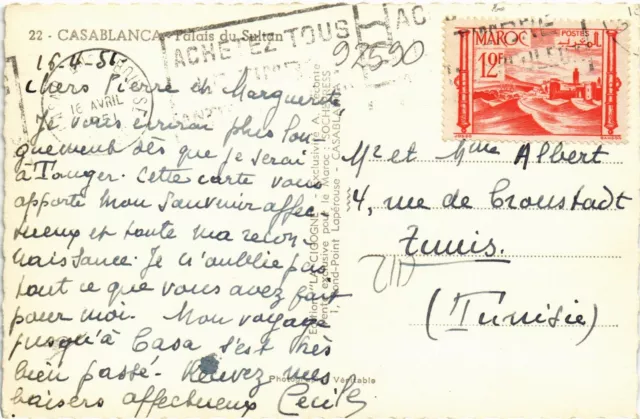 22 - CASABLANCA - Palais du Sultan
16-4-51
Chers Pierre et Marguerite
Je vous écrirai plus lon-
guement dès que je serai
à Tanger. Cette carte vous
apporte mon souvenir affec-
tueux et toute ma recon-
naissance. Je n'oublie pas
tout ce que vous avez fait
pour moi. Mon voyage
jusqu'à Casa s'est très
bien passé. Recevez mes
baisers affectueux Cecile
ACHETEZ TOUS
16 AVRIL
1951
92590
Editions "LA CIGOGNE" - Exclusivité A.
Vente exclusive pour le Maroc SOCHEPRESS
1, Rond-Point Lapérouse - CASABLANCA
Photographie Véritable
MAROC
POSTES
12F
Mr et Mme Albert
4, rue de Cronstadt
Tunis.
(Tunisie)